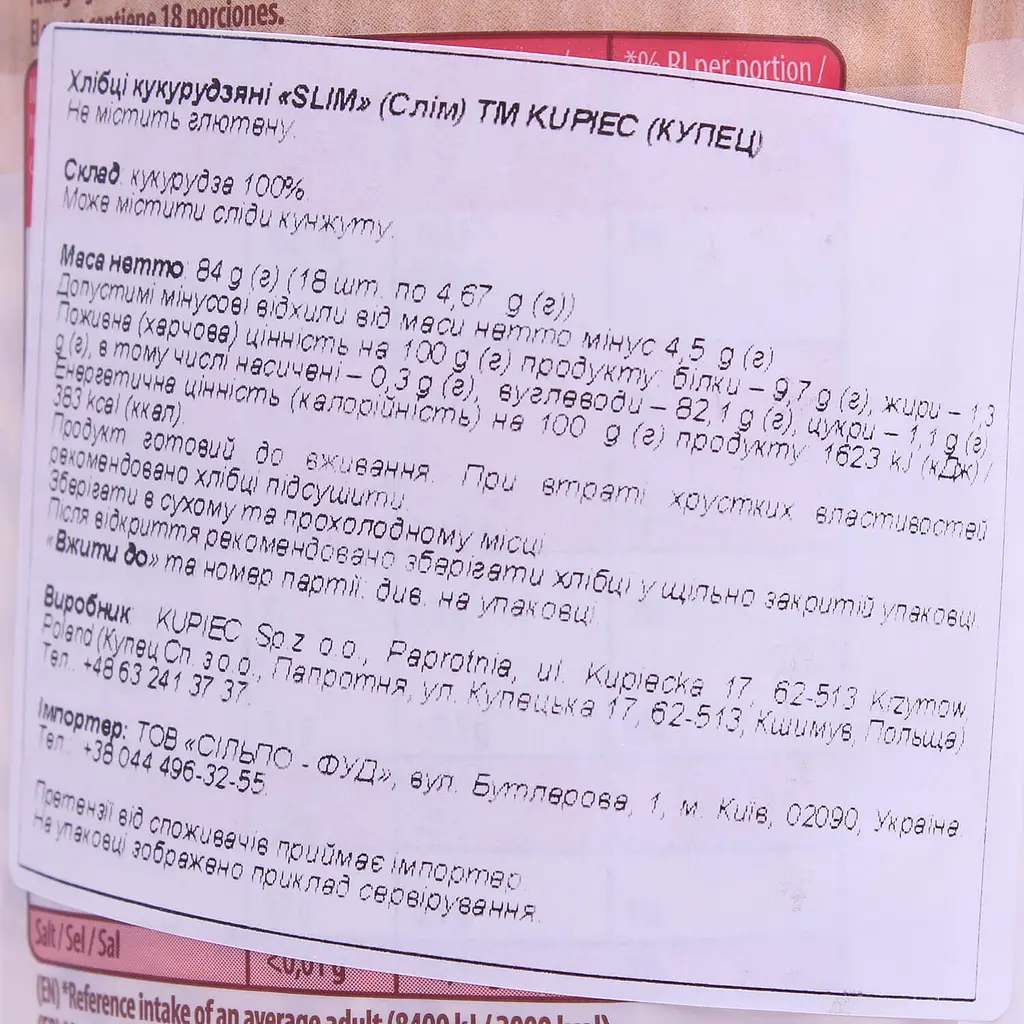 contiene 18 porciones.
*% RI per portion /
Хлібці кукурудзяні «SLIM» (Слім) ТМ KUPIEC (КУПЕЦ)
Не містить глютену.
Склад: кукурудза 100%.
Може містити сліди кунжуту.
Маса нетто: 84 g (г) (18 шт. по 4,67 g (г))
Допустимі мінусові відхили від маси нетто мінус 4,5 g (г)
Поживна (харчова) цінність на 100 g (г) продукту: білки – 9,7 g (г), жири – 1,3
g (г), в тому числі насичені – 0,3 g (г), вуглеводи – 82,1 g (г), цукри – 1,1 g (г)
Енергетична цінність (калорійність) на 100 g (г) продукту: 1623 kJ (кДж) /
383 kcal (ккал).
Продукт готовий до вживання. При втраті хрустких властивостей
рекомендовано хлібці підсушити.
Зберігати в сухому та прохолодному місці.
Після відкриття рекомендовано зберігати хлібці у щільно закритій упаковці.
«Вжити до» та номер партії: див. на упаковці.
Виробник: KUPIEC Sp.z o.o., Paprotnia, ul. Kupiecka 17, 62-513 Krzymow,
Poland (Купец Сп. з о.о., Папротня, ул. Купецька 17, 62-513, Кшимув, Польща)
Тел.: +48 63 241 37 37.
Імпортер: ТОВ «СІЛЬПО - ФУД», вул. Бутлерова, 1, м. Київ, 02090, Україна.
Тел.: +38 044 496-32-55.
Претензії від споживачів приймає імпортер.
На упаковці зображено приклад сервірування.
Salt / Sel / Sal
<0,01 g
(EN) *Reference intake of an average adult (8400 kJ / 2000 kcal)